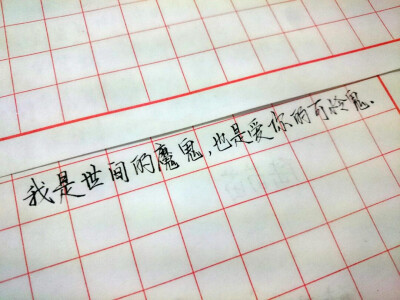 我是世间的魔鬼,也是爱你的可怜鬼.